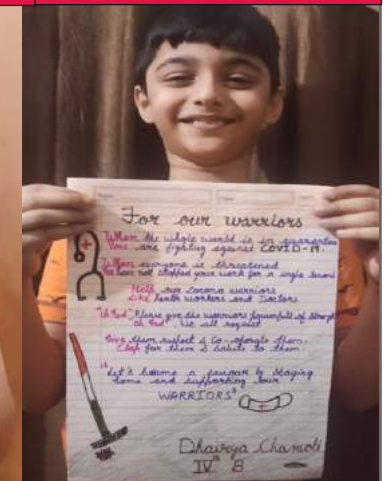 For our warriors
When the whole world is in quarantine
You are fighting against COVID-19.
When everyone is threatened
You have not stopped your work for a single second
Hello our corona warriors
Like health workers and Doctors
"Oh God", Please give the warriors of strength
oh God, we all request
Give them respect & Co-operate them.
Clap for them & Salute to them.
"Let's become a by Staying
home and supporting our
WARRIORS"
Dhairya Chamoli
IV B